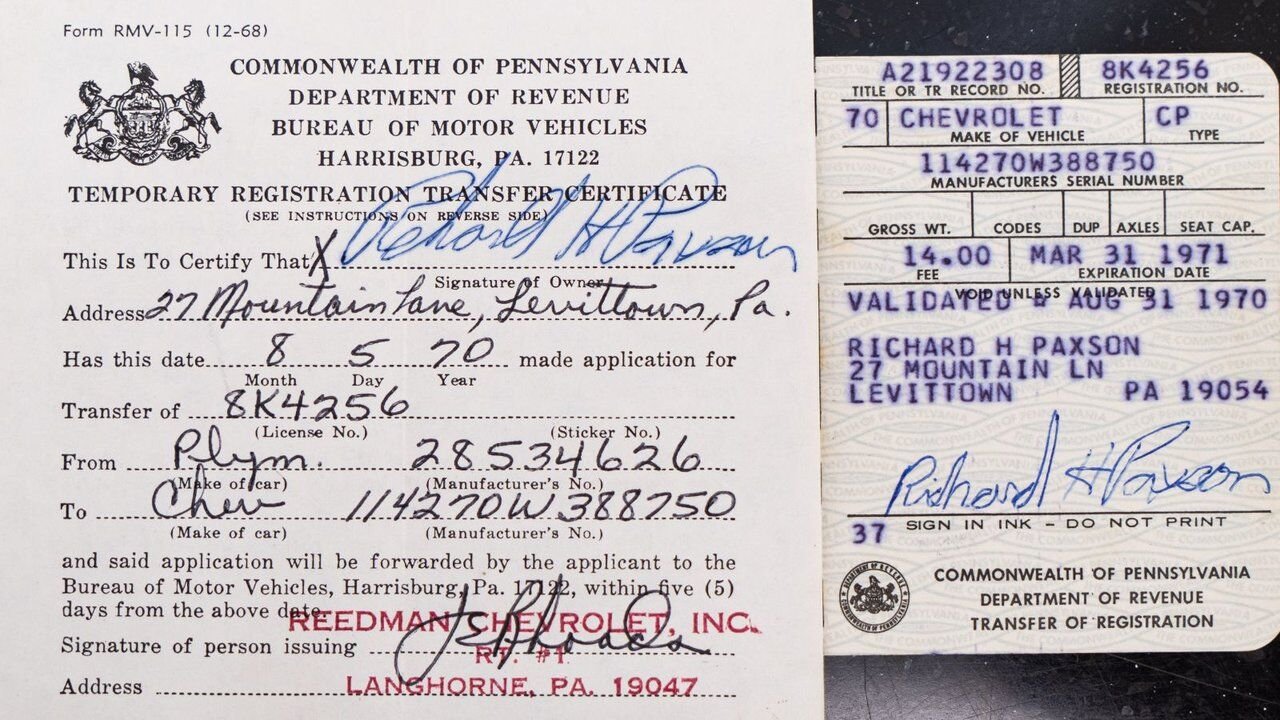 Form RMV-115 (12-68)
COMMONWEALTH OF PENNSYLVANIA
DEPARTMENT OF REVENUE
BUREAU OF MOTOR VEHICLES
HARRISBURG, PA. 17122
TEMPORARY REGISTRATION TRANSFER CERTIFICATE
(SEE INSTRUCTIONS ON REVERSE SIDE)
This Is To Certify That X Richard H Paxson
Signature of Owner
Address 27 Mountain Lane, Levittown, Pa.
Has this date 8 5 70 made application for
Month Day Year
Transfer of 8K4256
(License No.) (Sticker No.)
From Plym. 28534626
(Make of car) (Manufacturer's No.)
To Chev 114270W388750
(Make of car) (Manufacturer's No.)
and said application will be forwarded by the applicant to the
Bureau of Motor Vehicles, Harrisburg, Pa. 17122, within five (5)
days from the above date.
REEDMAN CHEVROLET, INC.
Signature of person issuing J E Rhoads
RT. #1
Address LANGHORNE, PA. 19047
A21922308 8K4256
TITLE OR TR RECORD NO. REGISTRATION NO.
70 CHEVROLET CP
MAKE OF VEHICLE TYPE
114270W388750
MANUFACTURERS SERIAL NUMBER
GROSS WT. CODES DUP AXLES SEAT CAP.
14.00 MAR 31 1971
FEE EXPIRATION DATE
VOID UNLESS VALIDATED
VALIDATED AUG 31 1970
RICHARD H PAXSON
27 MOUNTAIN LN
LEVITTOWN PA 19054
Richard H Paxson
37 SIGN IN INK - DO NOT PRINT
COMMONWEALTH OF PENNSYLVANIA
DEPARTMENT OF REVENUE
TRANSFER OF REGISTRATION